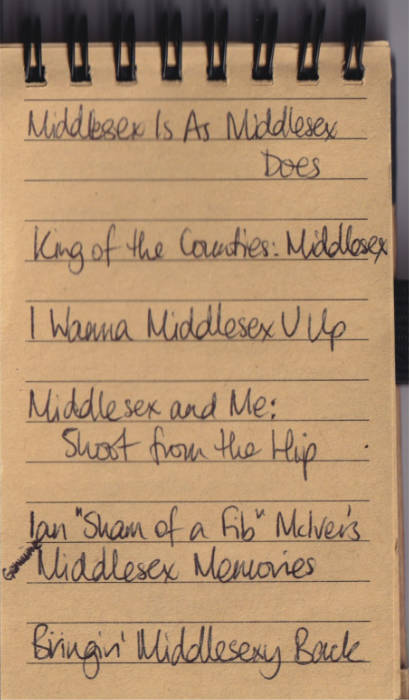 Middlesex Is As Middlesex
Does
King of the Counties: Middlesex
I Wanna Middlesex U Up
Middlesex and Me:
Shoot from the Hip
Ian "Sham of a Fib" McIver's
Genuine
Middlesex Memories
Bringin' Middlesexy Back